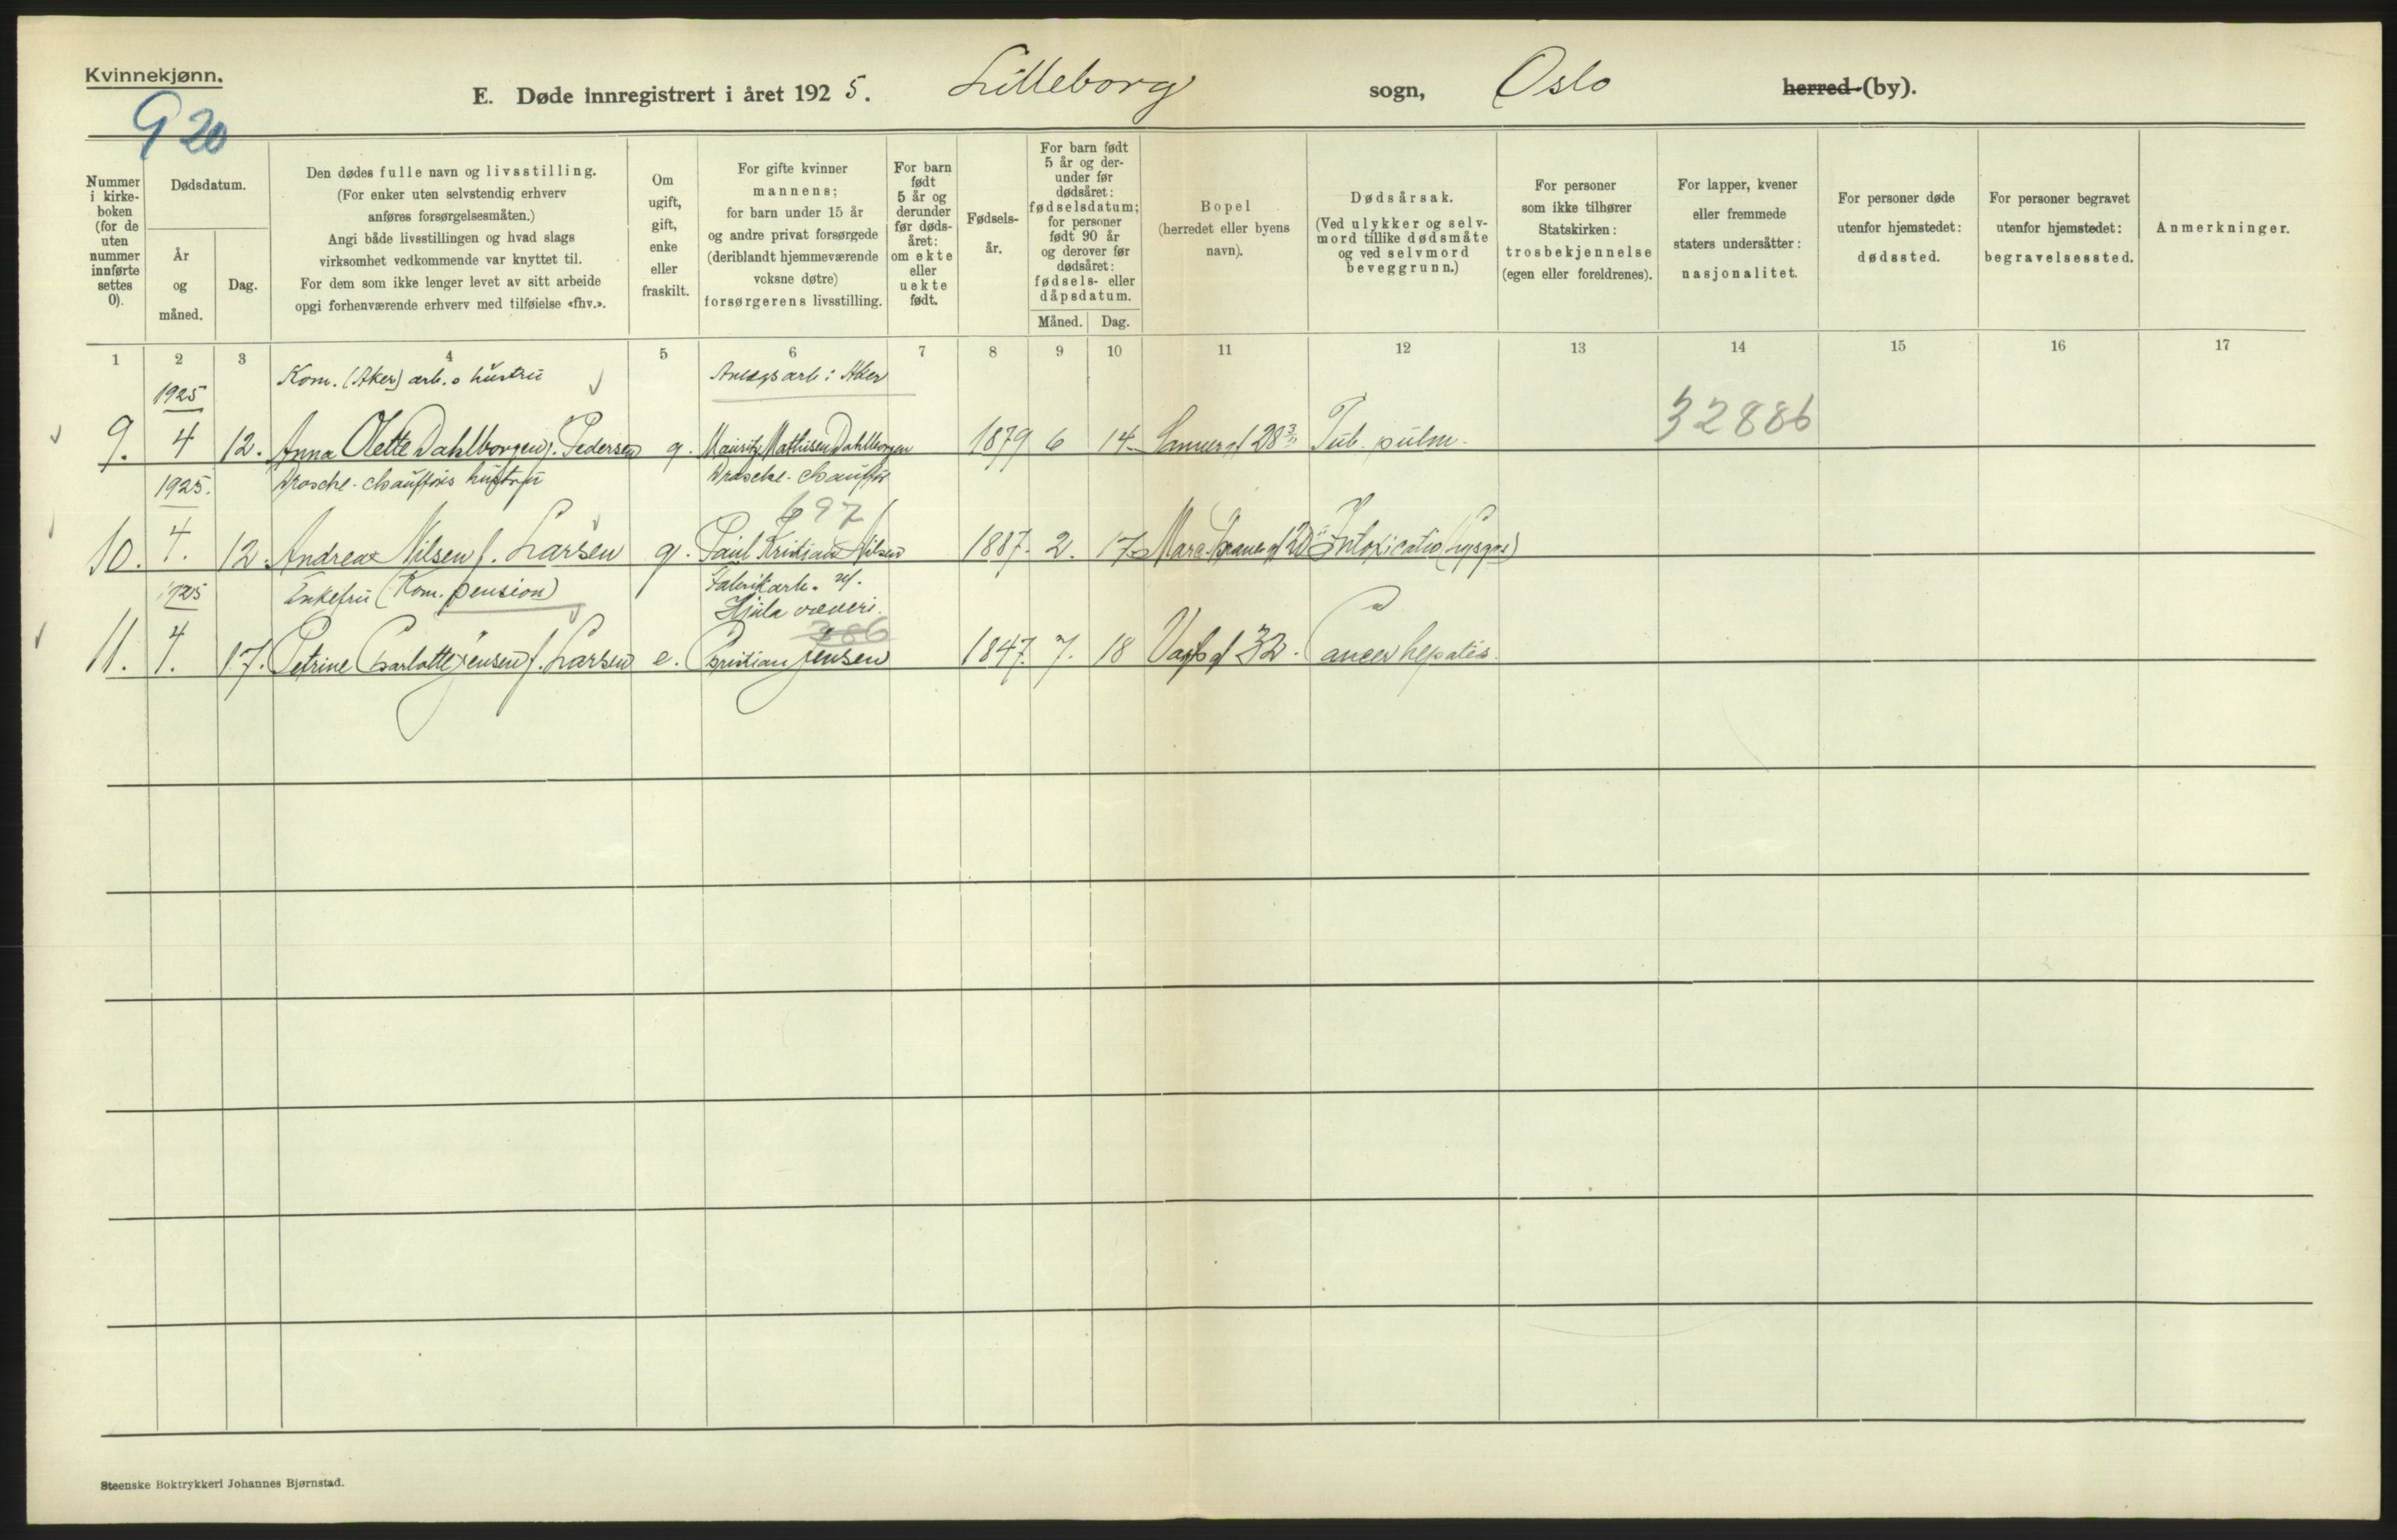 Kvinnekjønn.
920
E. Døde innregistrert i året 1925. Lilleborg sogn, Oslo herred (by).
Nummer i kirke- boken (for de uten nummer innførte settes 0).
Dødsdatum.
År og måned.
Dag.
Den dødes fulle navn og livsstilling.
(For enker uten selvstendig erhverv
anføres forsørgelsesmåten.)
Angi både livsstillingen og hvad slags
virksomhet vedkommende var knyttet til.
For dem som ikke lenger levet av sitt arbeide
opgi forhenværende erhverv med tilføielse «fhv.».
Om ugift, gift, enke eller fraskilt.
For gifte kvinner
mannens;
for barn under 15 år
og andre privat forsørgede
(deriblandt hjemmeværende
voksne døtre)
forsørgerens livsstilling.
For barn født 5 år og derunder før døds- året: om ekte eller uekte født.
Fødsels- år.
For barn født 5 år og der- under før dødsåret: fødselsdatum; for personer født 90 år og derover før dødsåret: fødsels- eller dåpsdatum.
Måned. Dag.
Bopel
(herredet eller byens
navn).
Dødsårsak.
(Ved ulykker og selv-
mord tillike dødsmåte
og ved selvmord
beveggrunn.)
For personer
som ikke tilhører
Statskirken:
trosbekjennelse
(egen eller foreldrenes).
For lapper, kvener
eller fremmede
staters undersåtter:
nasjonalitet.
For personer døde
utenfor hjemstedet:
dødssted.
For personer begravet
utenfor hjemstedet:
begravelsessted.
Anmerkninger.
1 2 3 4 5 6 7 8 9 10 11 12 13 14 15 16 17
1925 Kom. (Aker) arb. s hustru arb. i Aker
9. 4 12. Anna Olette Dahlborgen f. Pedersen g. Mauritz Mathisen Dahlborgen 1879 6 14 28 Tub. pulm. 32886
1925. Drosche-chaufførs hustru Drosche-chauffør
697
10. 4. 12. Andrea Nilsen f. Larsen g. Paul Kristian Nilsen 1887. 2. 17 Intoxicatio (Lysol)
1925 Enkefru (Kom. pension) Fabrikarb. v.
Hjula væveri.
386
11. 4. 17. Petrine Charlotte Jensen f. Larsen e. Christian Jensen 1847. 7. 18 32. Cancer hepatis.
Steenske Boktrykkeri Johannes Bjørnstad.